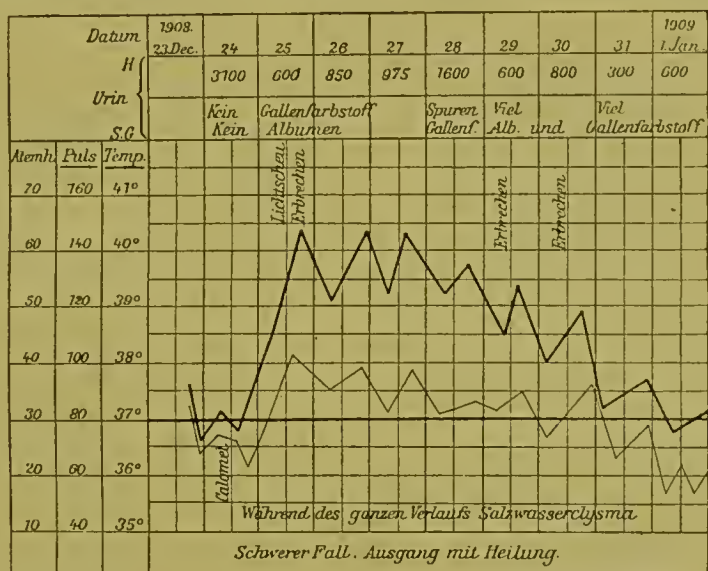 Datum 1908. 23 Dec. 24 25 26 27 28 29 30 31 1909 1 Jan.
Urin H 3100 600 850 975 1600 600 800 300 600
Kein Gallenfarbstoff Spuren Viel Viel
S.G Kein Albumen Gallenf. Alb. und Gallenfarbstoff
Atemh. Puls Temp.
70 160 41°
60 140 40°
50 120 39°
40 100 38°
30 80 37°
20 60 36°
10 40 35°
Lichtscheu
Erbrechen
Erbrechen
Erbrechen
Calomel
Während des ganzen Verlaufs Salzwasserclysma
Schwerer Fall. Ausgang mit Heilung.